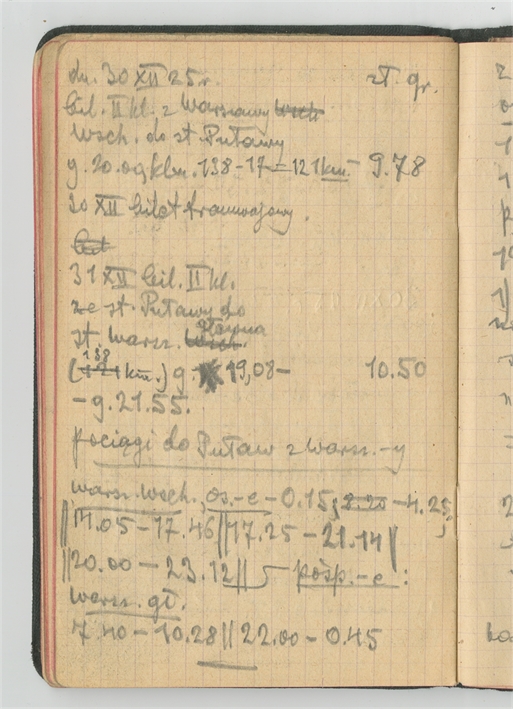 dn. 30 XII 25 r. zł. gr.
bil. II kl. z Warszawy Wsch
Wsch. do st. Puławy
g. 20.09 klm. 138-17=121 km. - 9.78
30 XII bilet tramwajowy.
bil
31 XII bil. II kl.
ze st. Puławy do
st. Warsz. Wsch. Główna
(121 138 km.) g. 19,08- 10.50
-g. 21.55.
pociągi do Puław z Warsz.-y
Warsz. wsch., os.-e - 0.15; 2.20 -4.25;
||14.05-17.46||17.25-21.14||
||20.00-23.12|| pośp.-e:
Warsz. gł.
7.40-10.28||22.00-0.45